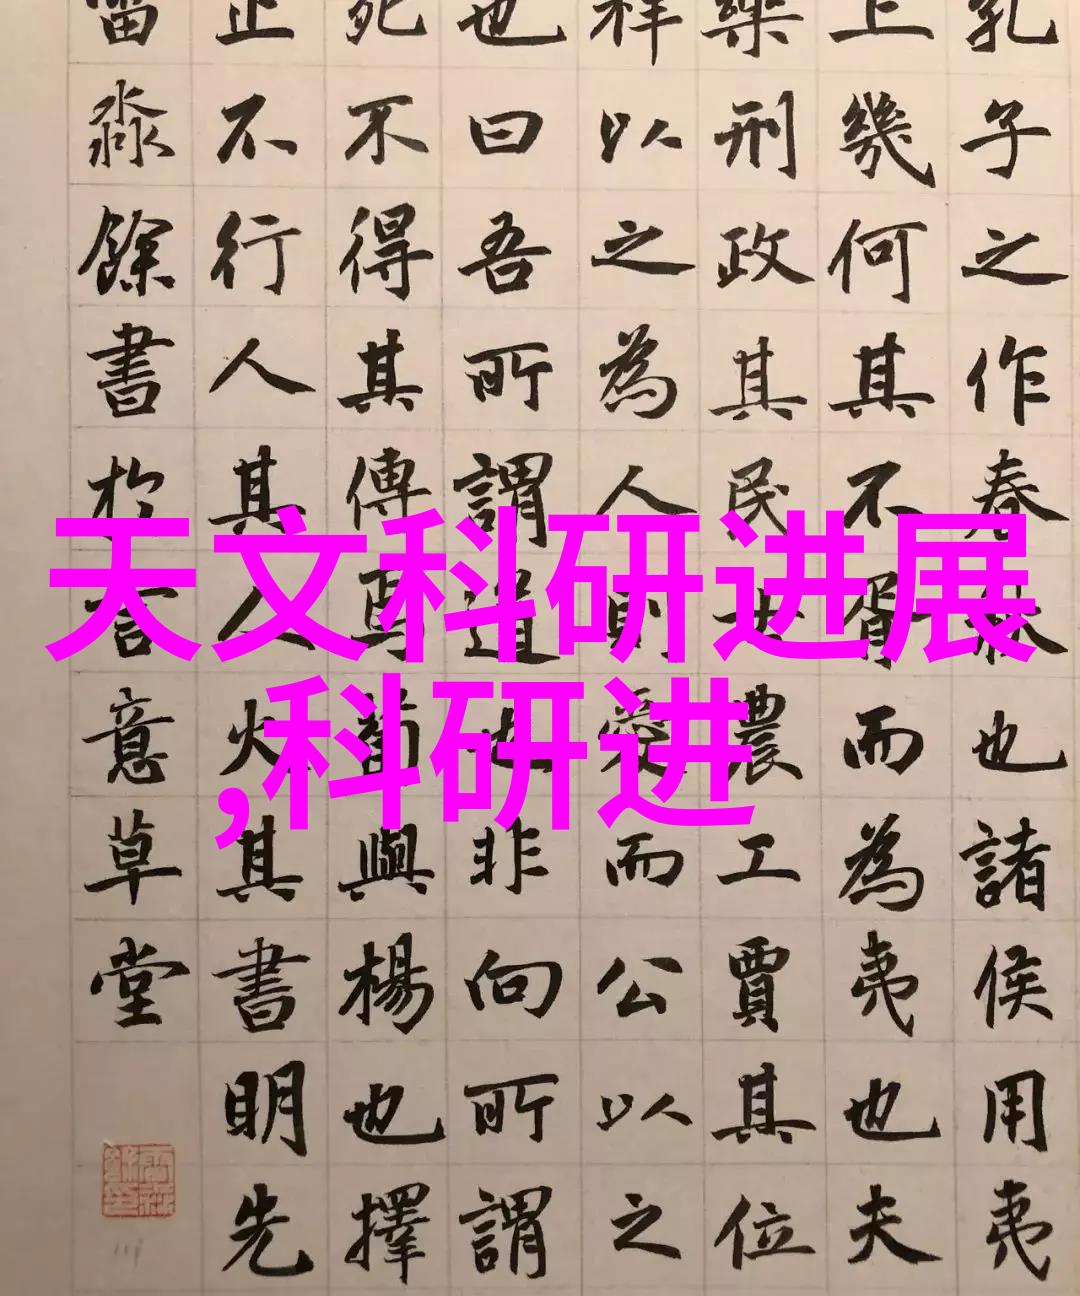 天文科研进展
,科研进
孔子之作春秋也諸侯用夷
上幾何其不胥而為夷也夫
樂刑政其民士農工賈其位
祥以之為人則愛而公以之
也曰吾所謂道也非向所謂
死不得其傳焉荀與楊也擇
止不行人其人火其書明先
淼餘書於意草堂